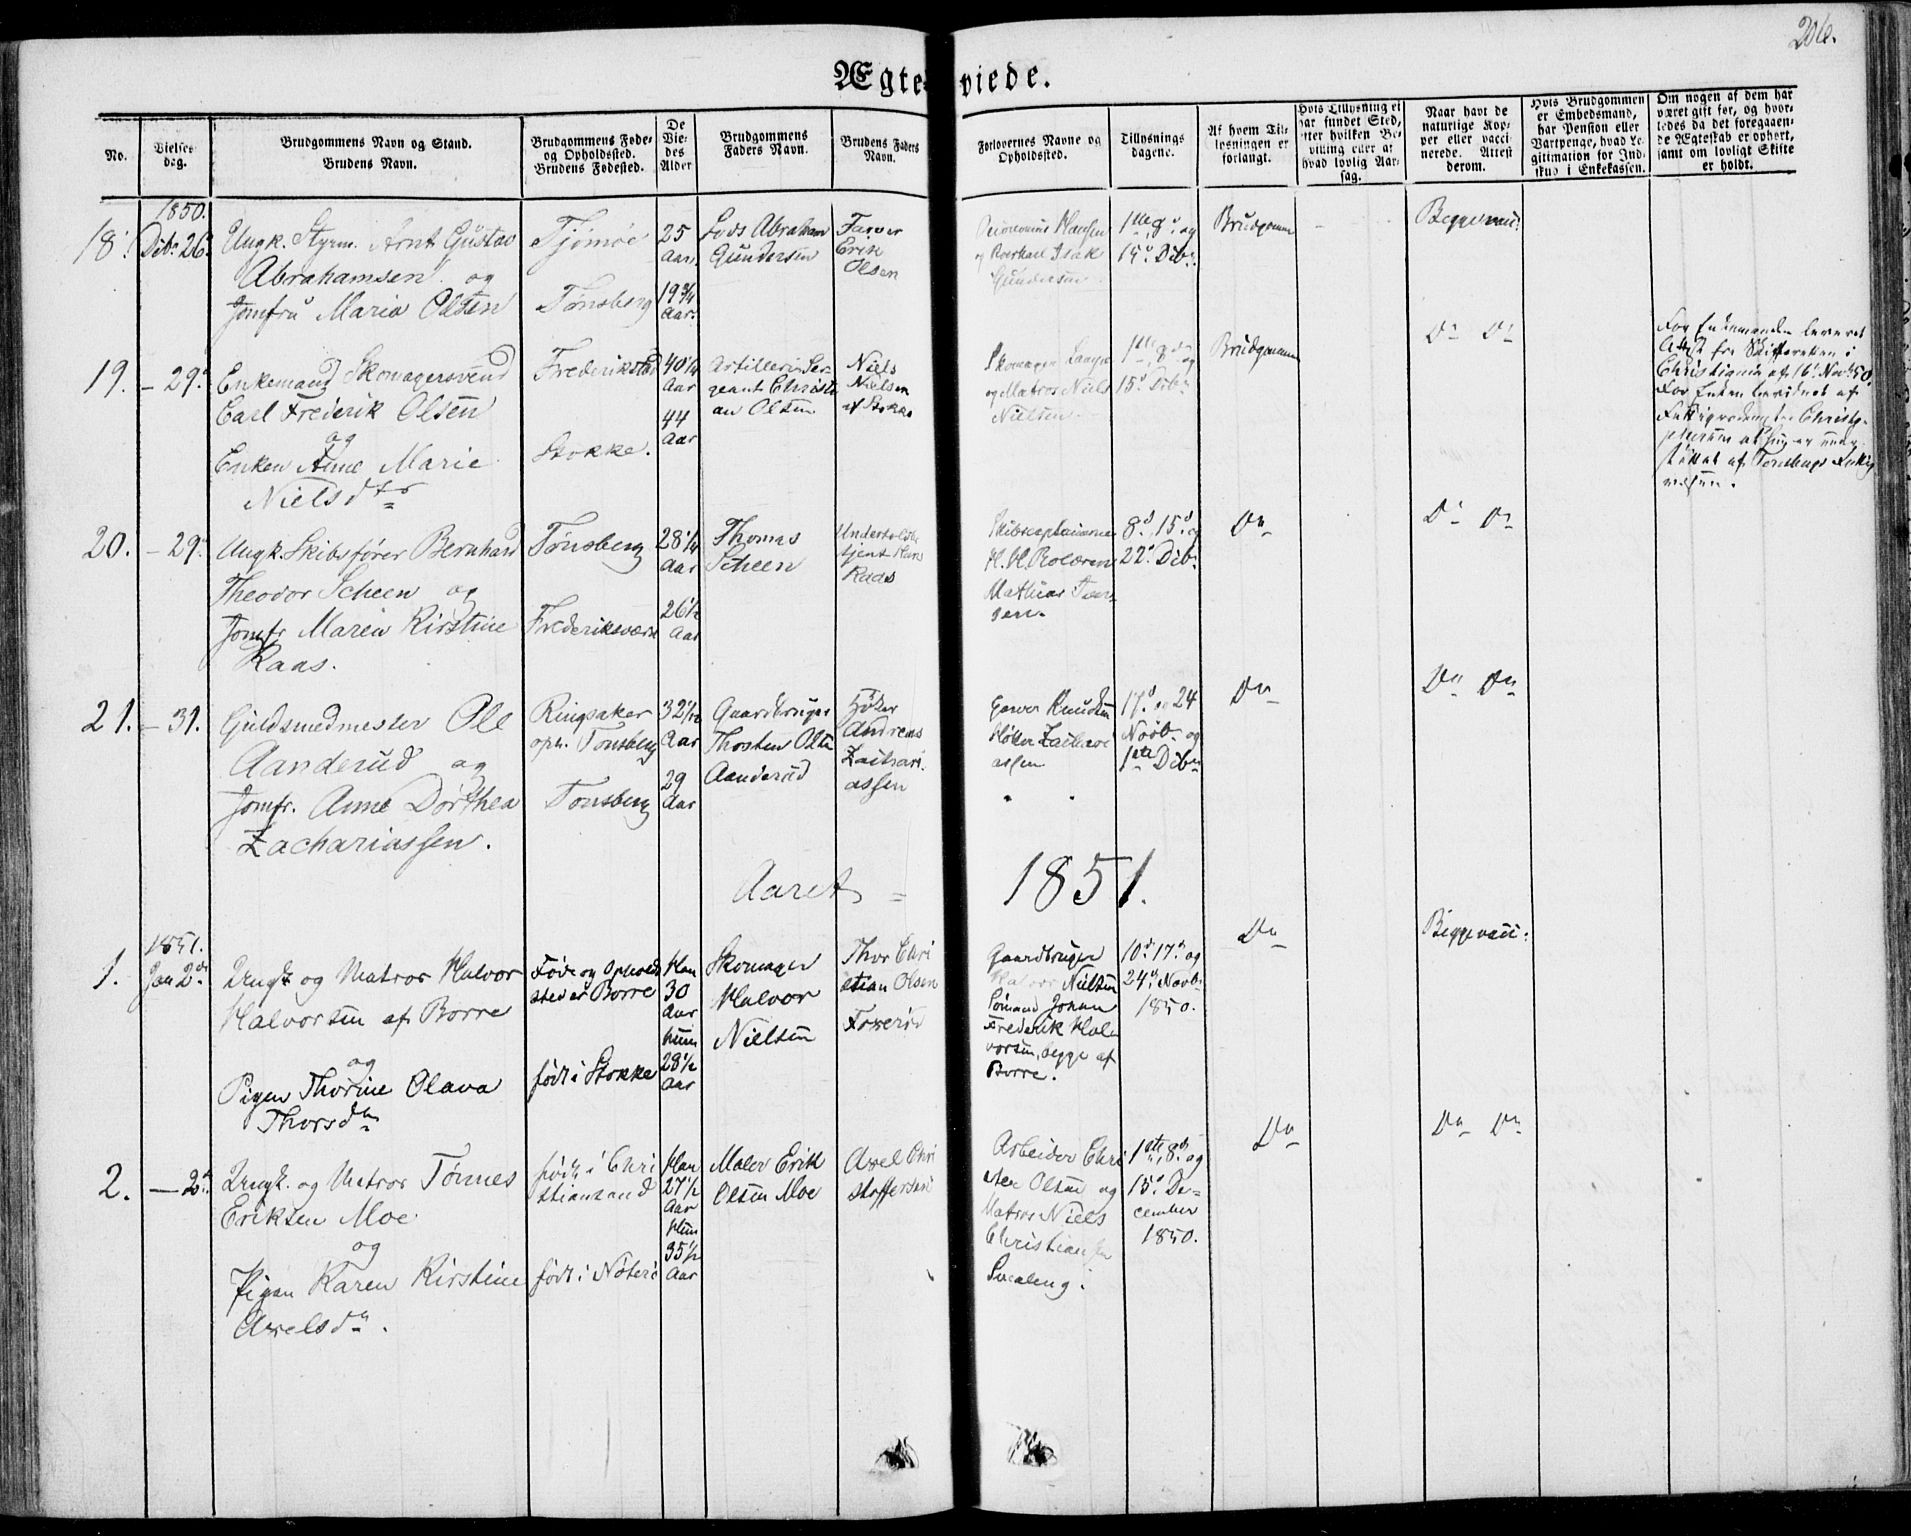 206.
Ægteviede.
No.
Vielses
dag.
Brudgommens Navn og Stand.
Brudens Navn.
Brudgommens Føde-
og Opholdssted.
Brudens Fødested.
De
Vie-
des
Alder
Brudgommens
Faders Navn.
Brudens Faders
Navn.
Forlovernes Navne og
Opholdssted.
Tillysnings
dagene.
Af hvem Til-
lysningen er
forlangt.
Hvis Tillysning ei
har fundet Sted,
efter hvilken Be-
villing eller af
hvad lovlig Aar-
sag.
Naar havt de
naturlige Kop-
per eller vacci-
nerede. Attest
derom.
Hvis Brudgommen
er Embedsmand,
har Pension eller
Vartpenge, hvad Le-
gitimation for Ind-
skud i Enkekassen.
Om nogen af dem har
været gift før, og hvor-
ledes da det foregaaen-
de Ægteskab er ophørt,
samt om lovligt Skifte
er holdt.
18.
1850.
Dcbr. 26.
Ungk. Styrm. Arnt Gustav
Abrahamsen og
Jomfru Maria Olsen
Tjømøe
Tønsberg
25
Aar.
19 3/4
Aar.
Lods Abraham
Gundersen
Farver
Erik
Olsen
Hansen
og Isak
Gundersen
1ste, 8de og
15d Dcbr.
Brudgommen
Begge vacc:
19.
- 29.
Enkemand Skomagersvend
Carl Frederik Olsen
og
Enken Anne Marie
Nielsdtr
Frederikstad
Stokke.
40 1/4
Aar
44
Aar
Artilleri Ser-
geant Christi
an Olsen
Niels
Nielsen
af Stokke
Skomager
og Matros Niels
Nielsen
1ste, 8de og
15d Dcbr
Brudgommen
Do Do
For Enkemanden leveret
Attest fra Skifteretten i
Christiania af 16d Novbr 50.
For Enken bevidnet af
Christo-
phersen at hun er unde
støttet af Tønsbergs Fattig
væsen.
20.
- 29.
Ungk. Skibsfører Bernhard
Theodor Scheen og
Jomfr Maren Kirstine
Raas.
Tønsberg
Frederiksværn
28 1/4
Aar
26 1/2
Aar
Thomas
Scheen
Undertoldb
tjent Hans
Raas
Skibscaptainerne
H. H. og
Mathias
sen.
8d, 15d og
22d Dcbr.
Do
Do Do
21.
- 31.
Guldsmedmester Ole
Aanderud og
Jomfr. Anne Dorthea
Zachariassen.
Ringsaker
oph. Tønsberg
Tønsberg
32 1/2
Aar
29
Aar
Gaardbruger
Thosten Olsen
Aanderud
Høker
Andreas
Zachari-
assen
Garver Knudsen
Høker Zachari
assen
17d og 24
Novbr. og
1ste Dcbr
Do
Do Do
Aaret = 1851.
1.
1851.
Jan 2den
Ungk og Matros Halvor
Halvorsen af Borre
og
Pigen Thorine Olava
Thorsdtr
Føde og Opholds
sted er Borre
født i Stokke
Han
30
Aar
Hun
28 1/2
Aar
Skomager
Halvor
Nielsen
Thor Chri
stian Olsen
Gaardbruger
Halvor Nielsen
Sømand Johan
Frederik Hal
vorsen, begge af
Borre.
10d, 17d og
24d Novbr
1850.
Do
Begge vacc:
2.
- 2d
Ungk. og Matros Tønnes
Eriksen Moe
og
Pigen Karen Kirstine
Axelsdtr.
født i Chri
stiansand
født i Nøterø
Han
27 1/2
Aar
Hun
35 1/2
Aar
Maler Erik
Olsen Moe
Axel Chri
stoffersen
Arbeider Chri
sten Olsen og
Matros Niels
Christiansen
1ste, 8de og
15d De-
cember
1850.
Do
Do Do